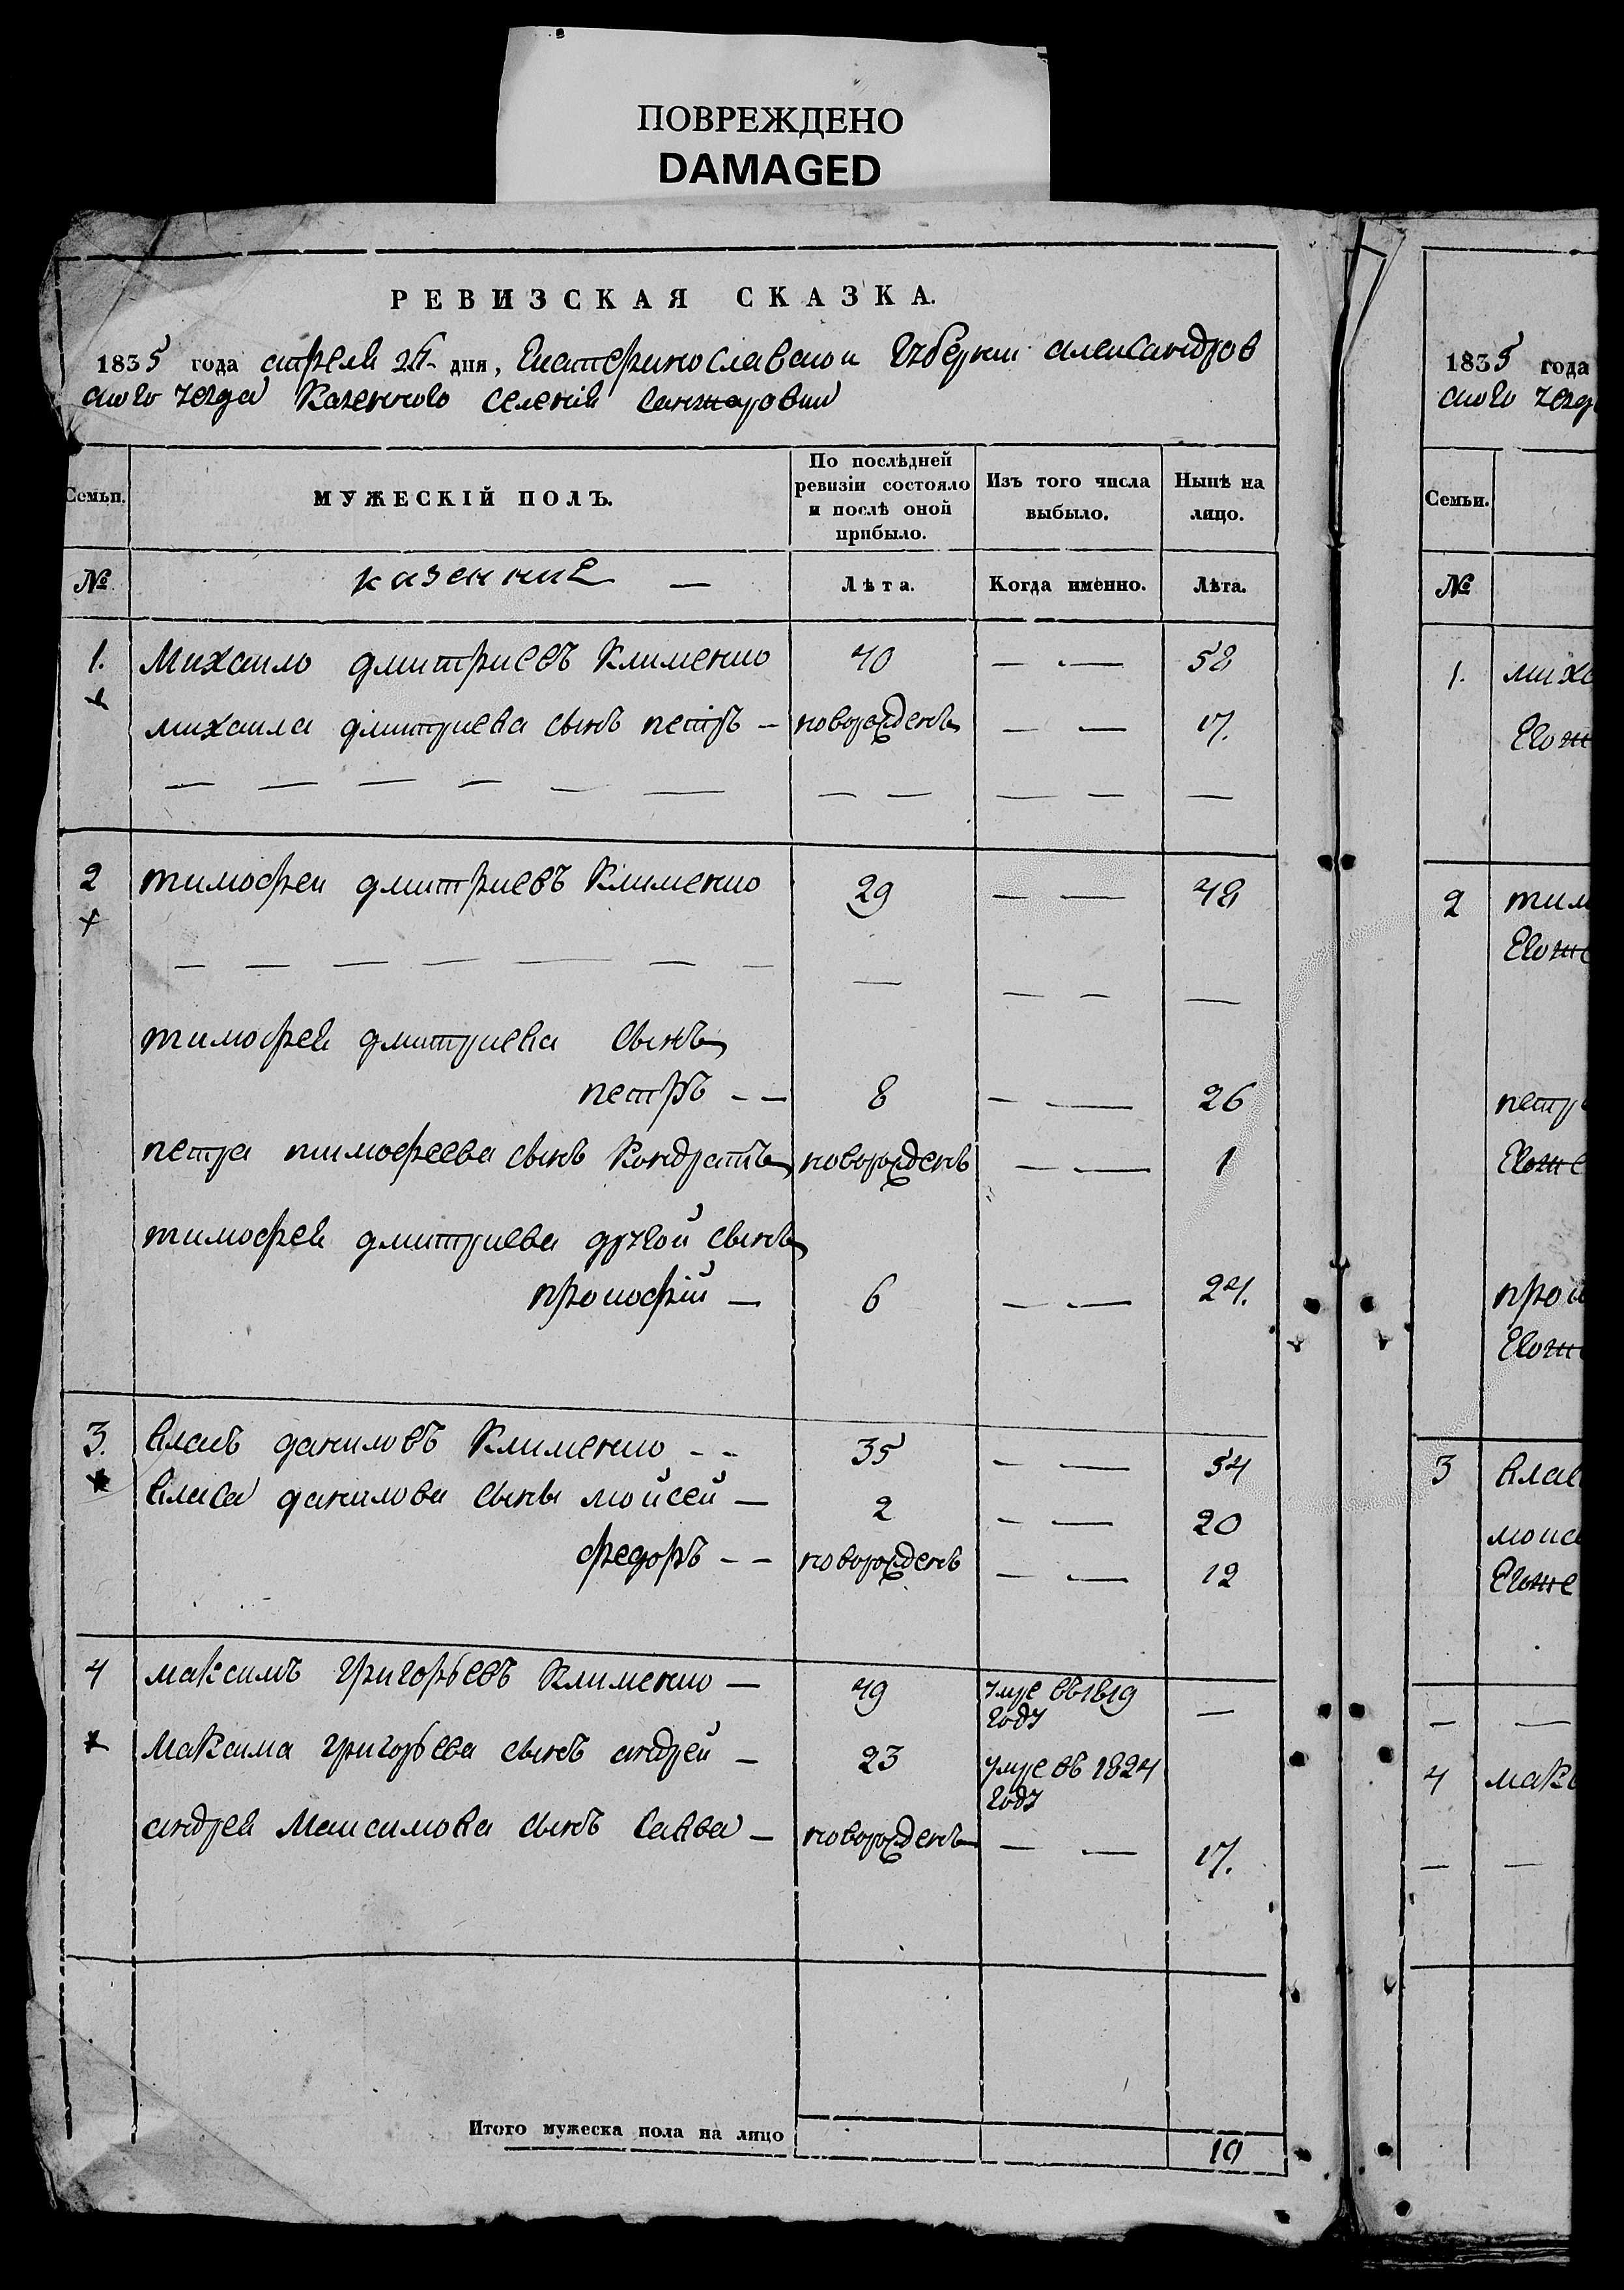 ПОВРЕЖДЕНО
DAMAGED
РЕВИЗСКАЯ СКАЗКА.
1835 года апреля дня, Екатеринославской Губерніи александров
ского уезда Казенного селенія санжаровки
Семьи. МУЖЕСКІЙ ПОЛЪ. По послѣдней ревизіи состояло и послѣ оной прибыло. Изъ того числа выбыло. Нынѣ на лицо.
№ казенние — Лѣта. Когда именно. Лѣта.
1. Михаило дмитриевъ Клименко 40 — — 58
михаила дмитриева сынъ петръ — новорожденъ — — 17.
2 тимофеи дмитриевъ Клименко 29 — — 48
тимофея дмитриева сынъ
петръ — — 8 — — 26
петра тимофеева сынъ Кондратъ новорожденъ — — 1
тимофея дмитриева другой сынъ
прокофій — 6 — — 24.
3. Власъ даниловъ Клименко — — 35 — — 54
Власа данилова сыны мойсей — 2 — — 20
федоръ — — новорожденъ — — 12
4 максимъ григорьевъ Клименко — 49 умре въ 1819 году —
Максима григорьева сынъ андрей — 23 умре въ 1824 году
андрея Максимова сынъ Савва — новорожденъ — — 17.
Итого мужеска пола на лицо 10
1835 года
ского уезд
Семьи.
№
1. миха
Его же
2 тим
Его же
петр
Его же
прок
Его же
3 Влас
моис
Его же
4 макс